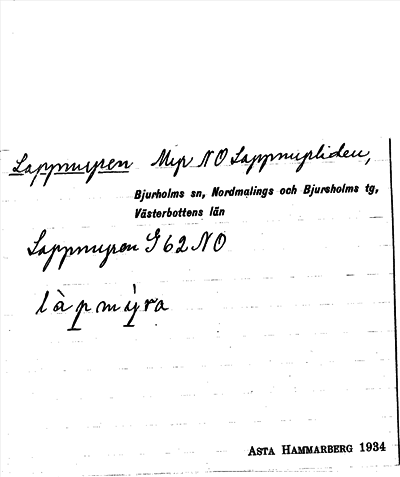 Lappmyren Myr NO Lappmyrliden,
Bjurholms sn, Nordmalings och Bjursholms tg,
Västerbottens län
Lappmyren G 62 NO
làpmỳra
ASTA HAMMARBERG 1934